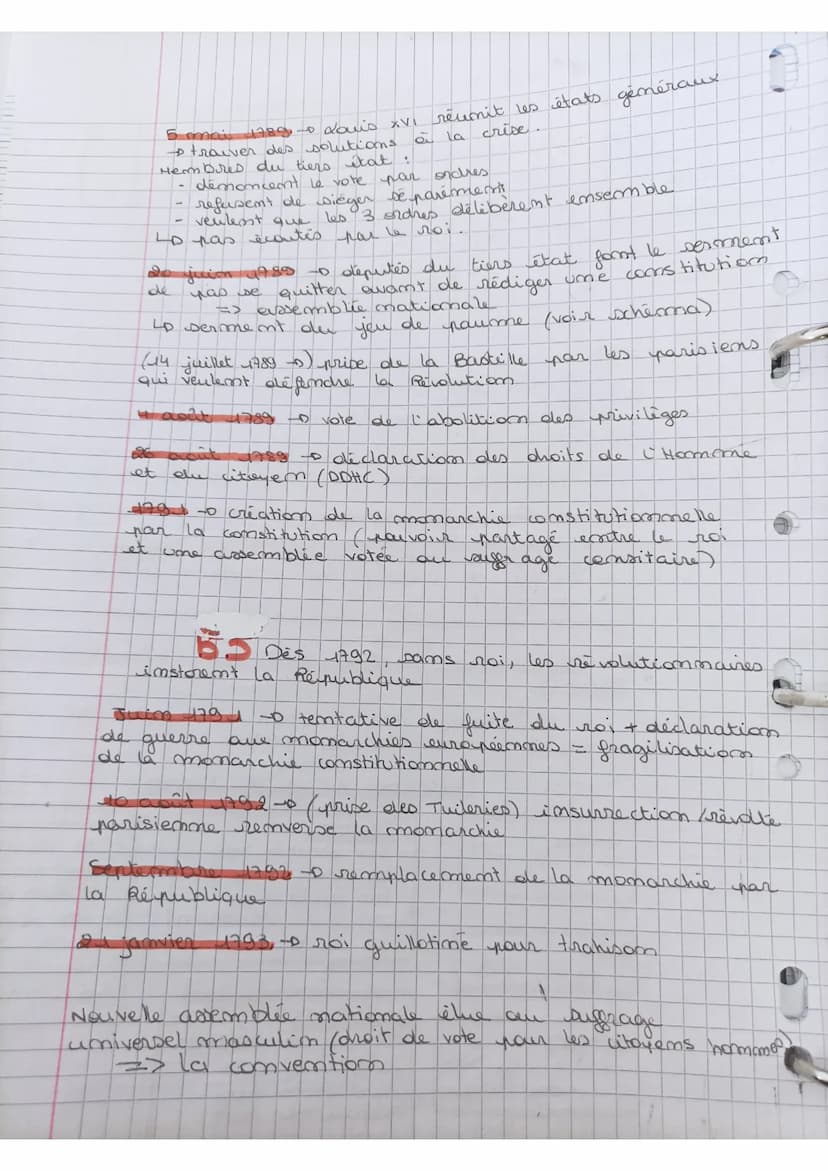 5 mai 1789 → Louis XVI réunit les états généraux
→ trouver des solutions à la crise.
Membres du tiers état :
- dénoncent le vote par ordres
- refusent de siéger séparément
- veulent que les 3 ordres délibèrent ensemble
↳ pas écoutés par le roi.
20 juin 1789 → députés du tiers état font le serment
de pas se quitter avant de rédiger une constitution
=> assemblée nationale
↳ serment du jeu de paume (voir schéma)
(14 juillet 1789 →) prise de la Bastille par les parisiens
qui veulent défendre la Révolution
4 août 1789 → vote de l'abolition des privilèges
26 août 1789 → déclaration des droits de l'Homme
et du citoyen (DDHC)
1791 → création de la monarchie constitutionnelle
par la constitution (pouvoir partagé entre le roi
et une assemblée votée au suffrage censitaire)
B) Dès 1792, sans roi, les révolutionnaires
instorent la République
Juin 1791 → tentative de fuite du roi + déclaration
de guerre aux monarchies européennes = fragilisation
de la monarchie constitutionnelle
10 août 1792 → (prise des Tuileries) insurrection/révolte
parisienne renverse la monarchie
Septembre 1792 → remplacement de la monarchie par
la République
21 janvier 1793 → roi guillotiné pour trahison
Nouvelle assemblée nationale élue au suffrage
universel masculin (droit de vote pour les citoyens homme)
=> la convention